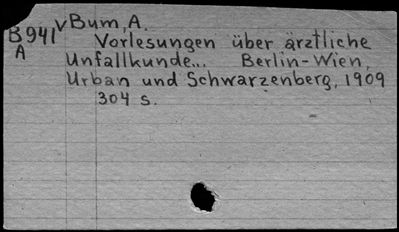 B941 v Bum, A.
A Vorlesungen über ärztliche
Unfallkunde... Berlin-Wien,
Urban und Schwarzenberg, 1909
304 s.